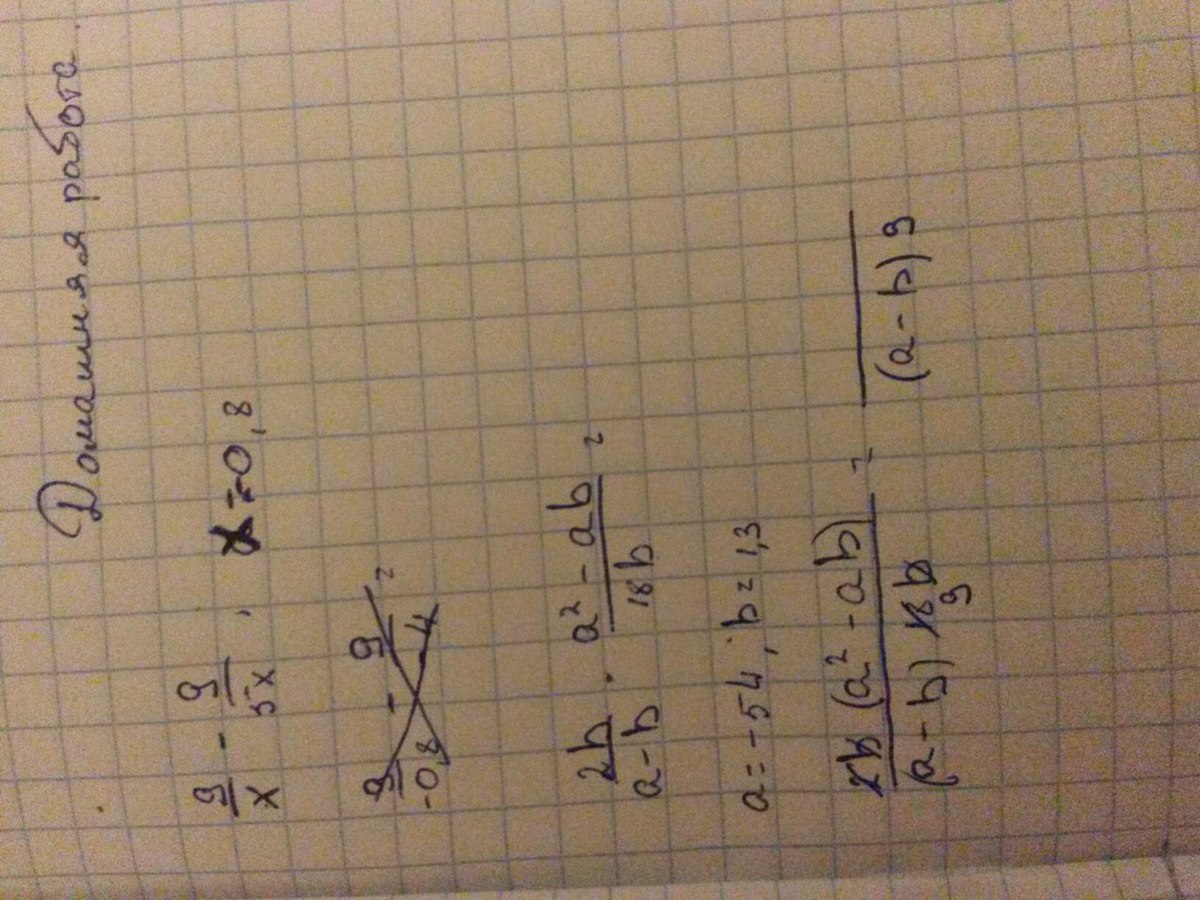 Домашняя работа.
9/x - 9/5x , x=-0,8
9/-0,8 - 9/-4 =
2b/a-b · a²-ab/18b =
a=-54; b=1,3
2b(a²-ab)/(a-b)18b 9 = /(a-b)9